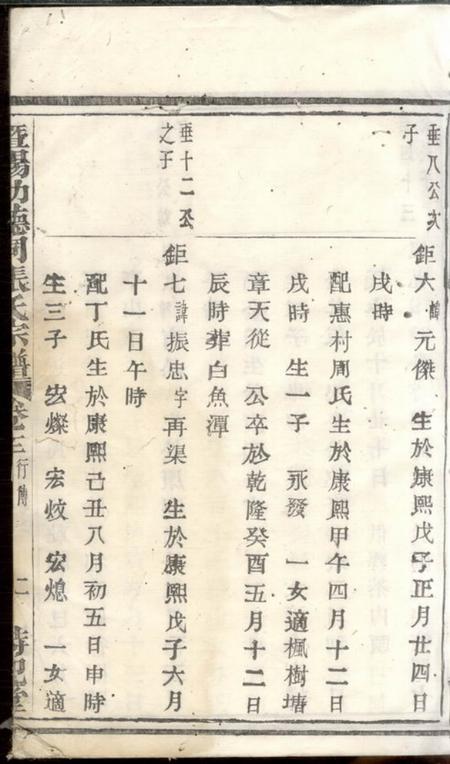 垂八公次
子
鉅六諱元傑　生於康熙戊子正月廿四日
戌時
配惠村周氏生於康熙甲午四月十二日
戌時　生一子　永發　一女適楓樹塘
章天從　公卒於乾隆癸酉五月十二日
辰時葬白魚潭
垂十二公
之子
鉅七諱振忠字再渠　生於康熙戊子六月
十一日午時
配丁氏生於康熙己丑八月初五日申時
生三子　宏燦　宏炆　宏熄　一女適
暨陽功德同張氏宗譜卷之三行傳　二